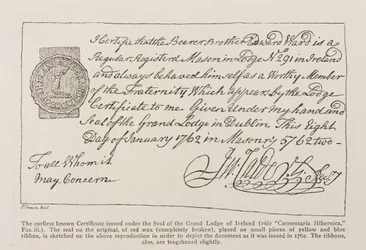 I Certifie that the Bearer Brother Edward Ward is a
Regular Registerd Mason in Lodge No. 91 in Ireland
and always behaved himself as a Worthy Member
of the Fraternity Which appears by the Lodge
Certificate to me. Given Under my hand and
Seal of the Grand Lodge in Dublin This Eight
Day of January 1762 in Masonry 5762 two
To all Whom it
May Concern
The earliest known Certificate issued under the Seal of the Grand Lodge of Ireland (vide "Cæmentaria Hibernica,"
Fas. iii.). The seal on the original, of red wax (completely broken), placed on small pieces of yellow and blue
ribbon, is sketched on the above reproduction in order to depict the document as it was issued in 1762. The ribbons,
also, are lengthened slightly.